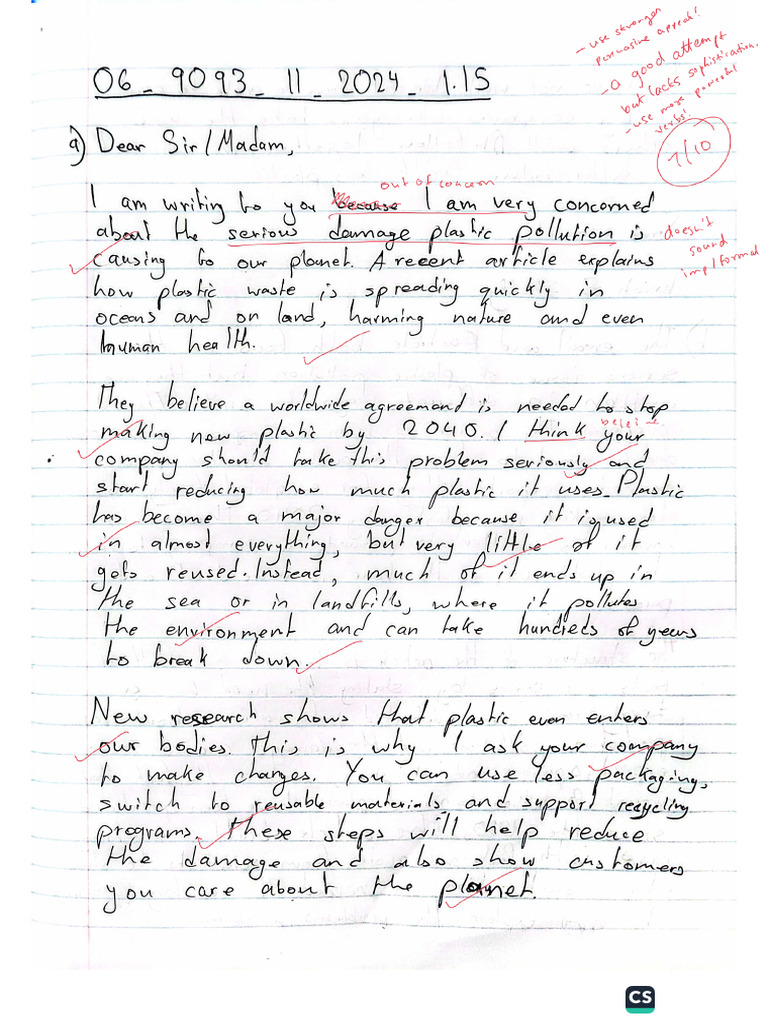 - use stronger
persuasive appeal!
- a good attempt
but lacks sophistication.
- use more powerful
verbs!
7/10
06 _ 9093 _ 11 _ 2024 _ 1.15
a) Dear Sir/Madam,
out of concern
I am writing to you because I am very concerned
about the serious damage plastic pollution is
doesn't
sound
imp/formal
causing to our planet. A recent article explains
how plastic waste is spreading quickly in
oceans and on land, harming nature and even
human health.
They believe a worldwide agreemend is needed to stop
making new plastic by 2040. I think your
company should take this problem seriously and
start reducing how much plastic it uses. Plastic
has become a major danger because it is used
in almost everything, but very little of it
gets reused. Instead, much of it ends up in
the sea or in landfills, where it pollutes
the environment and can take hundreds of years
to break down.
New research shows that plastic even enters
our bodies. This is why I ask your company
to make changes. You can use less packaging,
switch to reusable materials, and support recycling
programs. These steps will help reduce
the damage and also show customers
you care about the planet.
CS